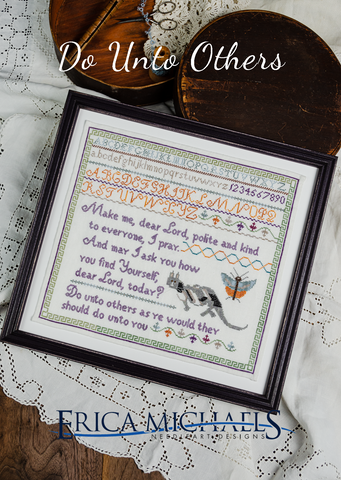 Do Unto Others
abcdefghijklmnopqrstuvwxyz 1234567890
Make me, dear Lord, polite and kind
to everyone, I pray.
And may I ask you how
you find Yourself,
dear Lord, today?
Do unto others as ye would they
should do unto you
ERICA MICHAELS
NEEDLEART DESIGNS